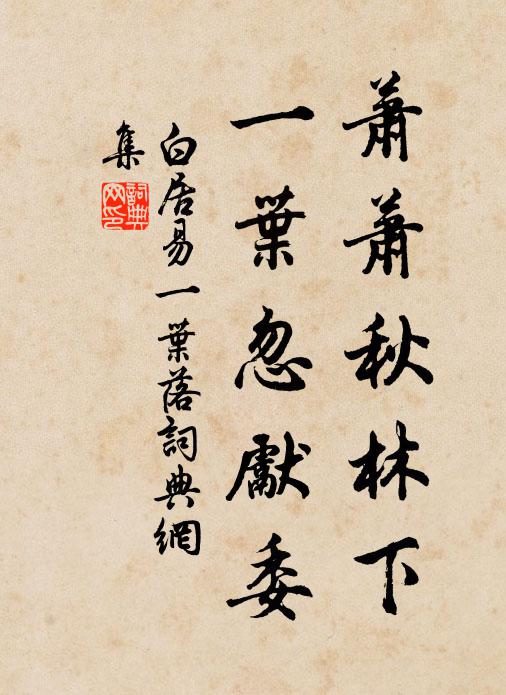 蕭蕭秋林下
一葉忽獻委
白居易一葉落詞典網
集
詞典
网印